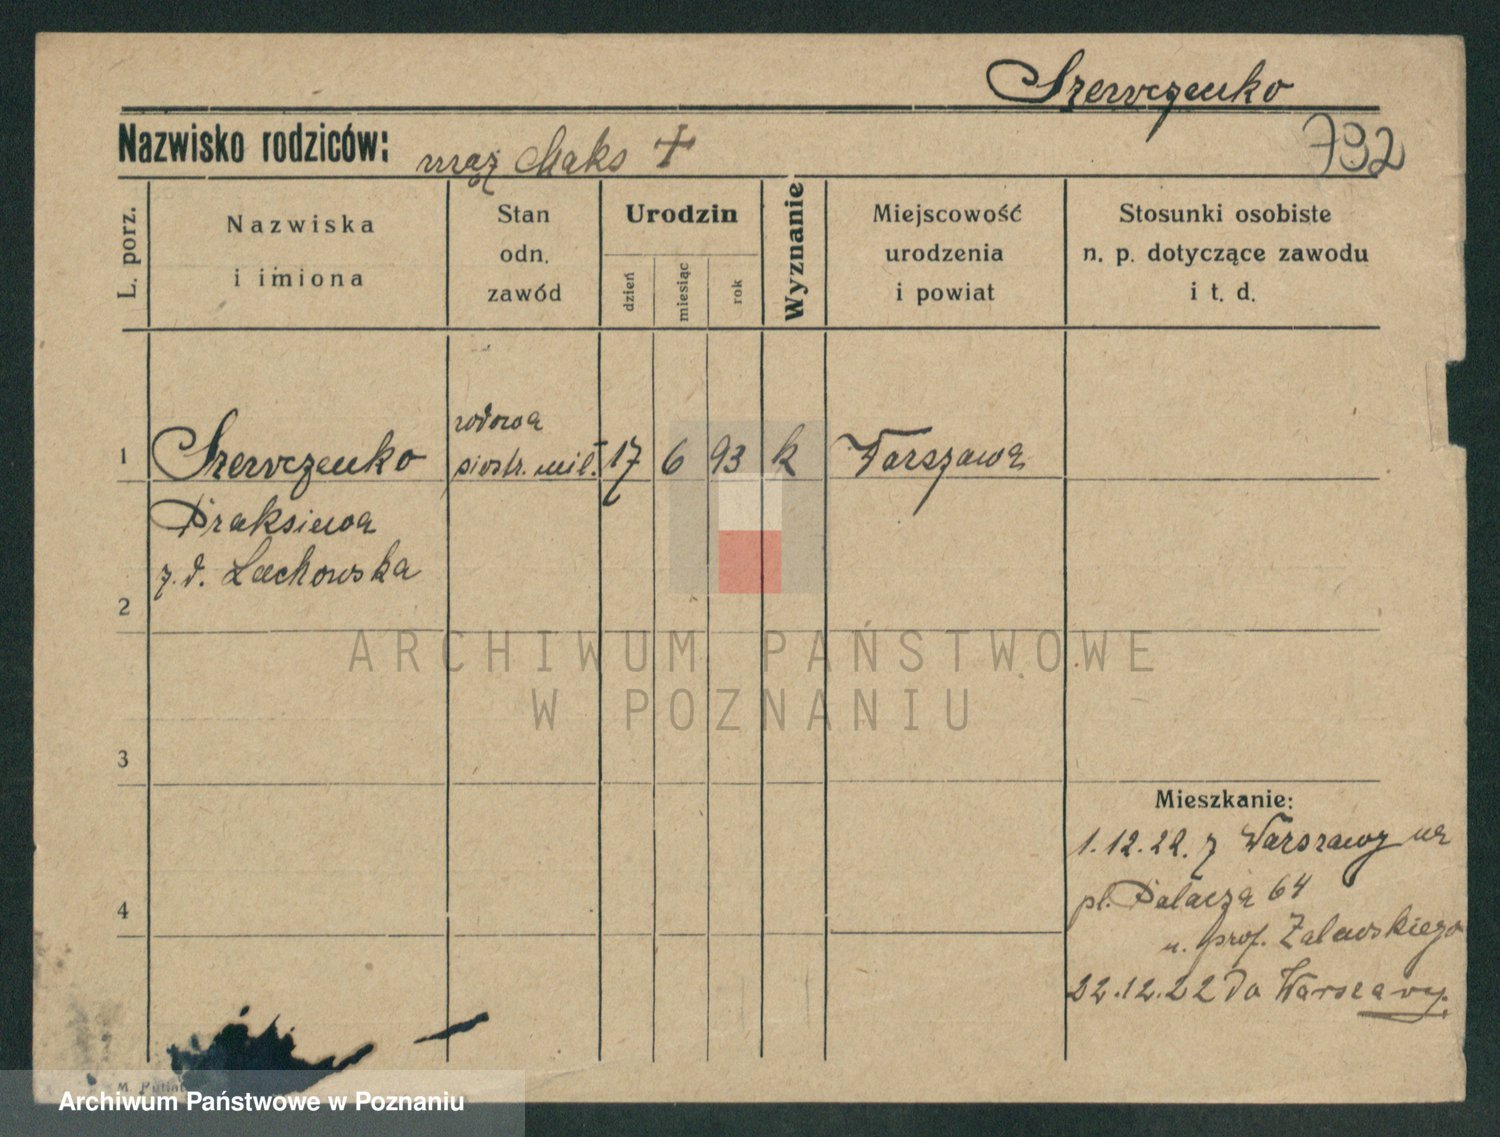 Szewczenko
Nazwisko rodziców: mąż Maks +
792
L. porz.
Nazwiska
i imiona
Stan
odn.
zawód
Urodzin
dzień
miesiąc
rok
Wyznanie
Miejscowość
urodzenia
i powiat
Stosunki osobiste
n. p. dotyczące zawodu
i t. d.
wdowa
1 Szewczenko siostr. mił. 17 6 93 k Warszawa
Praksiewa
z. d. Lachowska
2
ARCHIWUM PAŃSTWOWE
W POZNANIU
3
Mieszkanie:
1.12.22. z Warszawy na
pl. Palacza 64
4
u. prof. Zalewskiego
22.12.22 do Warszawy.
Archiwum Państwowe w Poznaniu